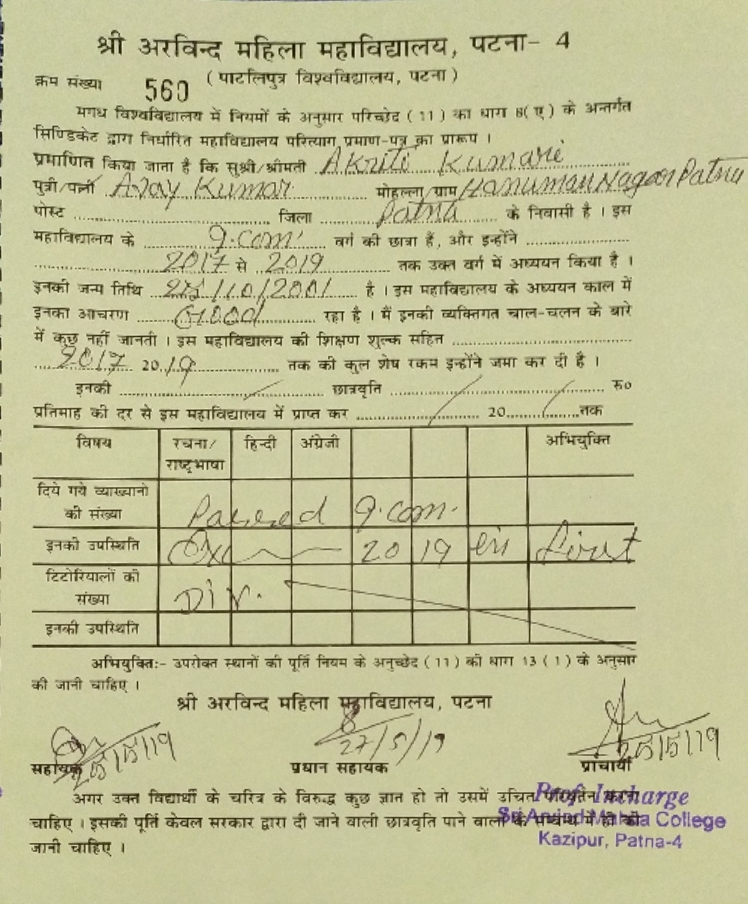 श्री अरविन्द महिला महाविद्यालय, पटना- 4
क्रम संख्या 560 (पाटलिपुत्र विश्वविद्यालय, पटना)
मगध विश्वविद्यालय में नियमों के अनुसार परिच्छेद (11) का धारा 8(ए) के अन्तर्गत
सिण्डिकेट द्वारा निर्धारित महाविद्यालय परित्याग प्रमाण-पत्र का प्रारूप ।
प्रमाणित किया जाता है कि सुश्री/श्रीमती Akriti Kumari
पुत्री/पत्नी Ajay Kumar मोहल्ला/ग्राम Hanuman Nagar Patna
पोस्ट जिला Patna के निवासी है । इस
महाविद्यालय के I.com वर्ग की छात्रा हैं, और इन्होंने
2017 से 2019 तक उक्त वर्ग में अध्ययन किया है ।
इनकी जन्म तिथि /10/2001 है । इस महाविद्यालय के अध्ययन काल में
इनका आचरण Good रहा है । मैं इनकी व्यक्तिगत चाल-चलन के बारे
में कुछ नहीं जानती । इस महाविद्यालय की शिक्षण शुल्क सहित
2017 2019 तक की कुल शेष रकम इन्होंने जमा कर दी है ।
इनकी छात्रवृति रू०
प्रतिमाह की दर से इस महाविद्यालय में प्राप्त कर 20 तक
विषय रचना/ हिन्दी अंग्रेजी अभियुक्ति
राष्ट्रभाषा
दिये गये व्याख्यानो
की संख्या Passed I.com.
इनकी उपस्थिति 2019 in first
टिटोरियालों की
संख्या Div.
इनकी उपस्थिति
अभियुक्तिः- उपरोक्त स्थानों की पूर्ति नियम के अनुच्छेद (11) की धारा 13 (1) के अनुसार
की जानी चाहिए ।
श्री अरविन्द महिला महाविद्यालय, पटना
27/5/19
सहायक प्रधान सहायक प्राचार्या
अगर उक्त विद्यार्थी के चरित्र के विरुद्ध कुछ ज्ञात हो तो उसमें उचित परिवर्तन करना
चाहिए । इसकी पूर्ति केवल सरकार द्वारा दी जाने वाली छात्रवृति पाने वालों के सम्बंध में ही की
जानी चाहिए ।
Prof. Incharge
Sri Arvind Mahila College
Kazipur, Patna-4